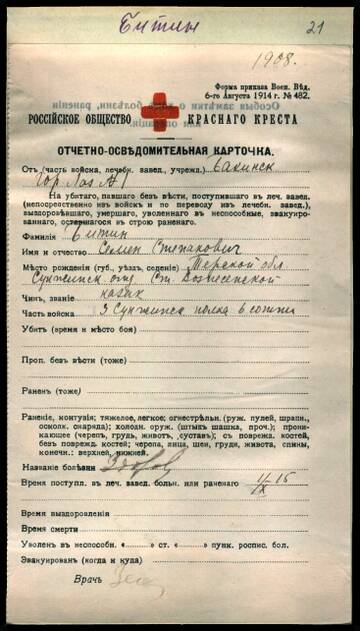 Битин 21
1908.
Форма приказа Воен. Вѣд.
6-го Августа 1914 г. № 482.
Особыя замѣтки о болѣзни, раненіи
или операціи
РОССІЙСКОЕ ОБЩЕСТВО КРАСНАГО КРЕСТА
ОТЧЕТНО-ОСВѢДОМИТЕЛЬНАЯ КАРТОЧКА.
Отъ (часть войска, лечебн. завед., учрежд.)
Гор Лаз № 1
На убитаго, павшаго безъ вѣсти, поступившаго въ леч. завед.
(непосредственно изъ войскъ и по переводу изъ лечебн. завед.),
выздоровѣвшаго, умершаго, уволеннаго въ неспособные, эвакуиро-
ваннаго, оставшагося въ строю раненаго.
Фамилія Битин
Имя и отчество Семен Степанович
Мѣсто рожденія (губ., уѣздъ, селеніе) Терской обл
Сунженск отд Ст. Вознесенской
Чинъ, званіе казак
Часть войска 3 Сунженск полка 6 сотни
Убитъ (время и мѣсто боя)
Проп. безъ вѣсти (тоже)
Раненъ (тоже)
Раненіе, контузія; тяжелое, легкое; огнестрѣльн. (руж. пулей, шрапн.,
осколк. снаряда); холодн. оруж. (штыкъ шашка, проч.); прони-
кающее (черепъ, грудь, животъ, суставъ); съ поврежд. костей,
безъ поврежд. костей; черепа, лица, шеи, груди, живота, спины,
конечн.: верхней, нижней.
Названіе болѣзни Здоров
Время поступл. въ леч. завед. больн. или раненаго 15
Время выздоровленія
Время смерти
Уволенъ въ неспособн. « » ст. « » пунк. роспис. бол.
Эвакуированъ (когда и куда)
Врачъ